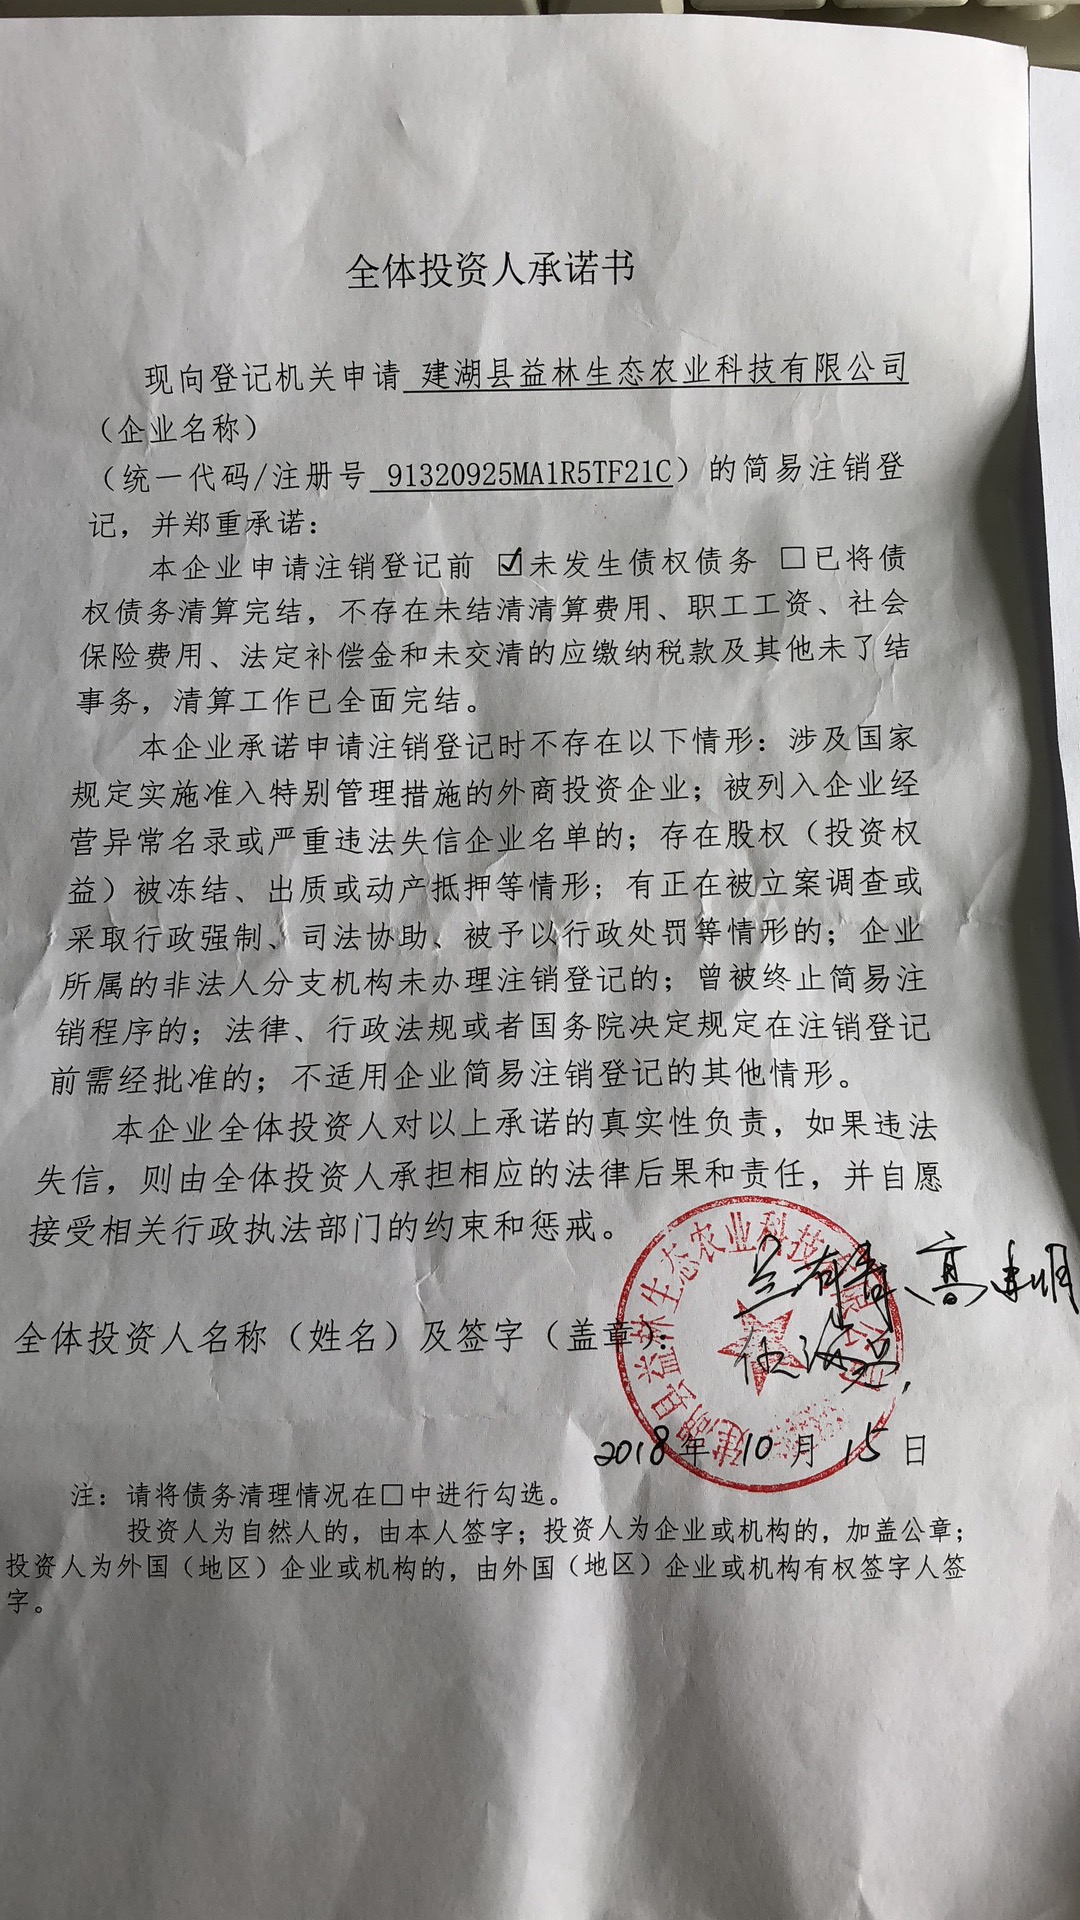 全体投资人承诺书
现向登记机关申请 建湖县益林生态农业科技有限公司
（企业名称）
（统一代码/注册号 91320925MA1R5TF21C）的简易注销登
记，并郑重承诺：
本企业申请注销登记前 ☑未发生债权债务 □已将债
权债务清算完结，不存在未结清清算费用、职工工资、社会
保险费用、法定补偿金和未交清的应缴纳税款及其他未了结
事务，清算工作已全面完结。
本企业承诺申请注销登记时不存在以下情形：涉及国家
规定实施准入特别管理措施的外商投资企业；被列入企业经
营异常名录或严重违法失信企业名单的；存在股权（投资权
益）被冻结、出质或动产抵押等情形；有正在被立案调查或
采取行政强制、司法协助、被予以行政处罚等情形的；企业
所属的非法人分支机构未办理注销登记的；曾被终止简易注
销程序的；法律、行政法规或者国务院决定规定在注销登记
前需经批准的；不适用企业简易注销登记的其他情形。
本企业全体投资人对以上承诺的真实性负责，如果违法
失信，则由全体投资人承担相应的法律后果和责任，并自愿
接受相关行政执法部门的约束和惩戒。
建湖县益林生态农业科技有限公司
高
全体投资人名称（姓名）及签字（盖章）：
2018年 10月 15日
注：请将债务清理情况在□中进行勾选。
投资人为自然人的，由本人签字；投资人为企业或机构的，加盖公章；
投资人为外国（地区）企业或机构的，由外国（地区）企业或机构有权签字人签
字。